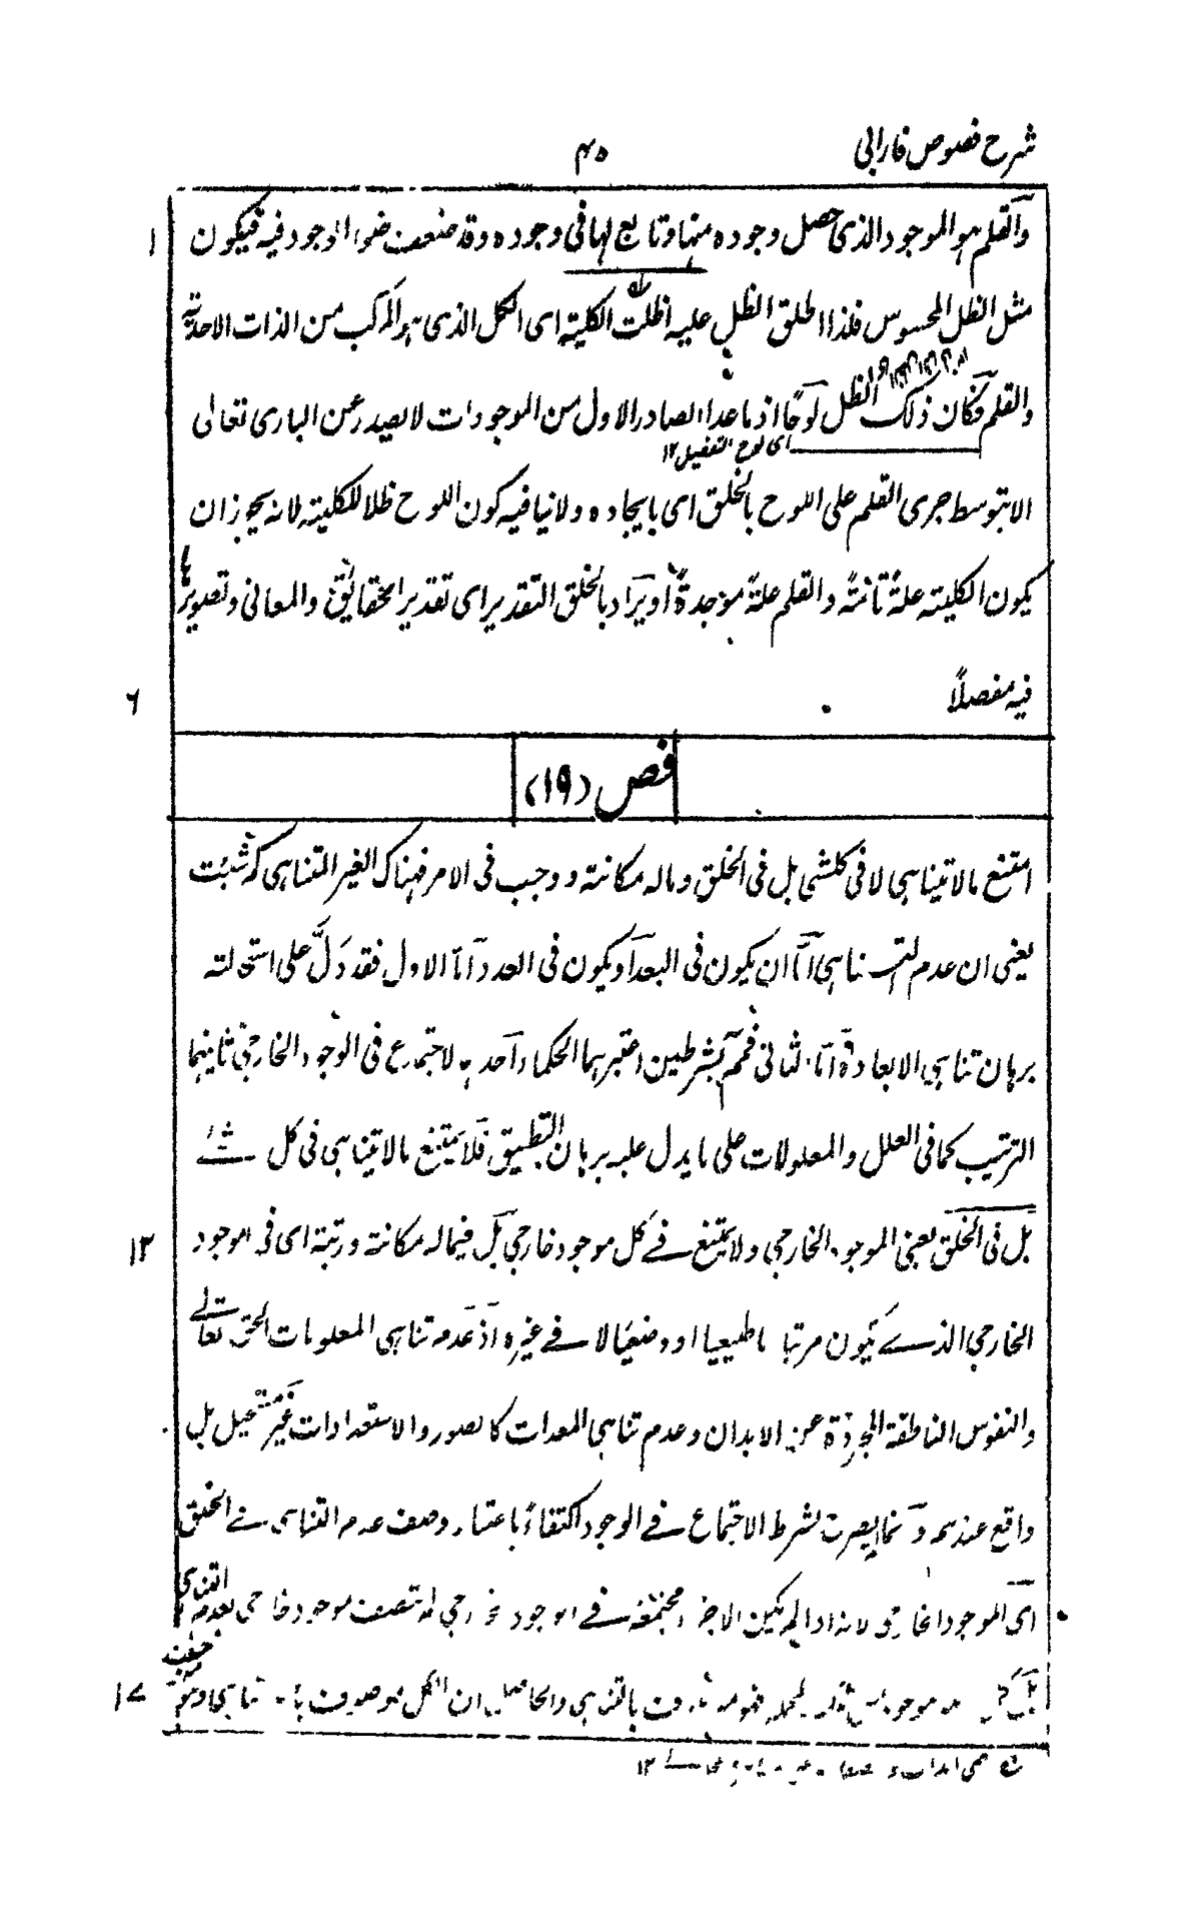 شرح فصوص فارابی
۴۵
والقلم هو الموجود الذی حصل وجوده منها وتابع لها فی وجوده وقد ضعفت ضوء الوجود فیه فیکون
۱
مثل الظل المحسوس فلذا اطلق الظل علیه اظلت الکلیة ای الکل الذی هو المرکب من الذات الاحدیة
والقلم فکان ذلک الظل لوحًا اذ ما عدا الصادر الاول من الموجودات لا یصدر عن الباری تعالی
ای لوح التفصیل ۱۲
الا بتوسط جری القلم علی اللوح بالخلق ای بایجاده ولا ینافیه کون اللوح ظلا للکلیة لانه یجوز ان
یکون الکلیة علةً تامةً والقلم علةً موجدةً او یراد بالخلق التقدیر ای تقدیر الحقائق والمعانی وتصویرها
فیه مفصلاً
۶
فص (۱۹)
امتنع مالا یتناهی لا فی کلشی بل فی الخلق وماله مکانة ووجب فی الامر فهناک الغیر المتناهی کم شئت
یعنی ان عدم التناهی اما ان یکون فی البعد او یکون فی العدد اما الاول فقد دلّ علی استحالته
برهان تناهی الابعاد واما الثانی فممتنع بشرطین اعتبرهما الحکماء احدهما الاجتماع فی الوجود الخارجی ثانیهما
الترتیب کما فی العلل والمعلولات علی ما یدل علیه برهان التطبیق فلا یمتنع مالا یتناهی فی کل شئ
بل فی الخلق یعنی الموجود الخارجی ولا یمتنع فے کل موجود خارجی بل فیما له مکانة ورتبة ای فی الموجود
۱۲
الخارجی الذے یکون مرتبا طبیعیا او وضعیًا لا فے غیره اذ عدم تناهی المعلومات الحق تعالے
والنفوس الناطقة المجردة عن الابدان وعدم تناهی المعدات کالصور والاستعدادات غیر مستحیل بل
واقع عندهم وانما لم یصرح بشرط الاجتماع فے الوجود اکتفاءً باعتبار وصف عدم التناهی فے الخلق
ای الموجود الخارجی لانه اذا لم یکن الاجزاء مجتمعة فے الوجود الخارجی لم یتصف موجود خارجی بعدم التناهی حقیقة
بل کل موجود فهو موصوف بالتناهی والحاصل ان الکل موصوف
۱۷